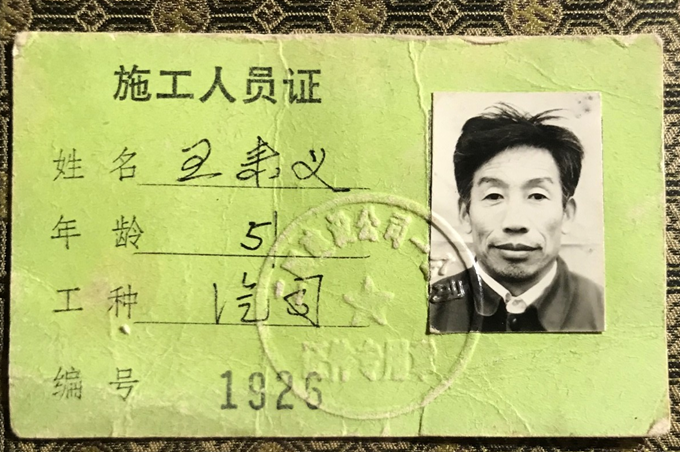 施工人员证
姓名 王来义
年龄 51
工种 汽司
编号 1926
公司一
专用